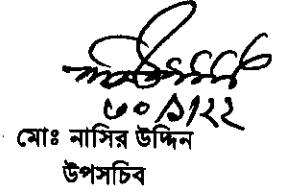 ৩০/১/২২
মোঃ নাসির উদ্দিন
উপসচিব